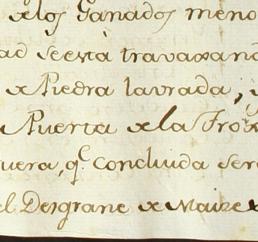 de los Ganados meno
ad se está travaxan
de Piedra lavrada; y
Puerta de la Trox
uera, q.e concluida ser
el Desgrane de Maize